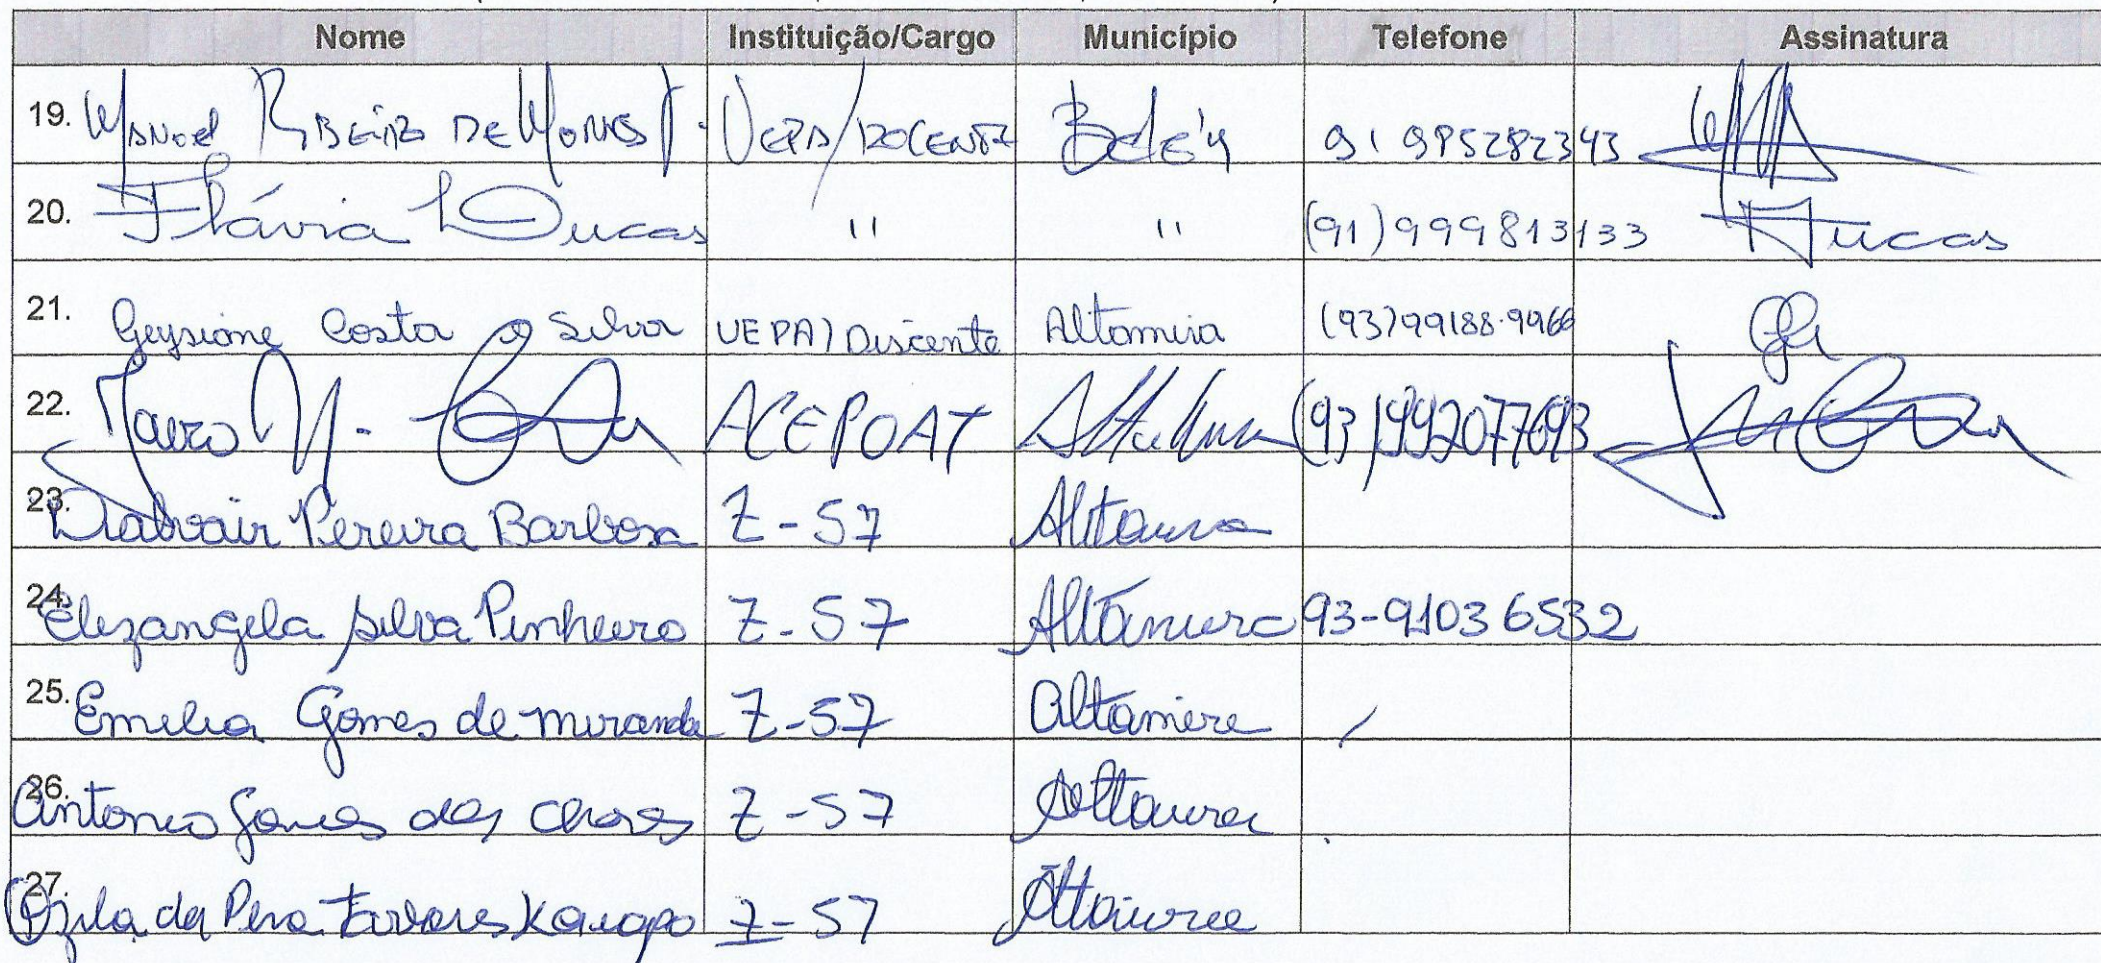 Nome Instituição/Cargo Município Telefone Assinatura
19. Manoel Ribeiro de Moraes Jr. UEPA/DOCENTE Belém 91 985282343
20. Flávia Lucas " " (91) 999813133 FLucas
21. Geysiane Costa e Silva UEPA/Discente Altamira (93)99188-9966
22. Jairo ACEPOAT Altamira (93)992077693
23. Pereira Barbosa Z-57 Altamira
24. Elezangela silva Pinheiro Z-57 Altamira 93-91036532
25. Emilia Gomes de miranda Z-57 Altamira
26. Antonio Gomes das chaves Z-57 Altamira
27. da Pena Z-57 Altamira